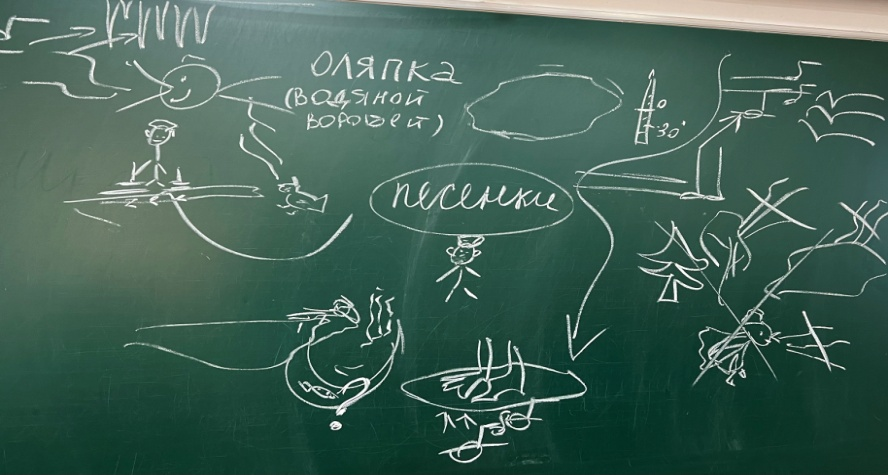 ОЛЯПКА
(ВОДЯНОЙ
ВОРОБЕЙ)
0
-30°
песенки